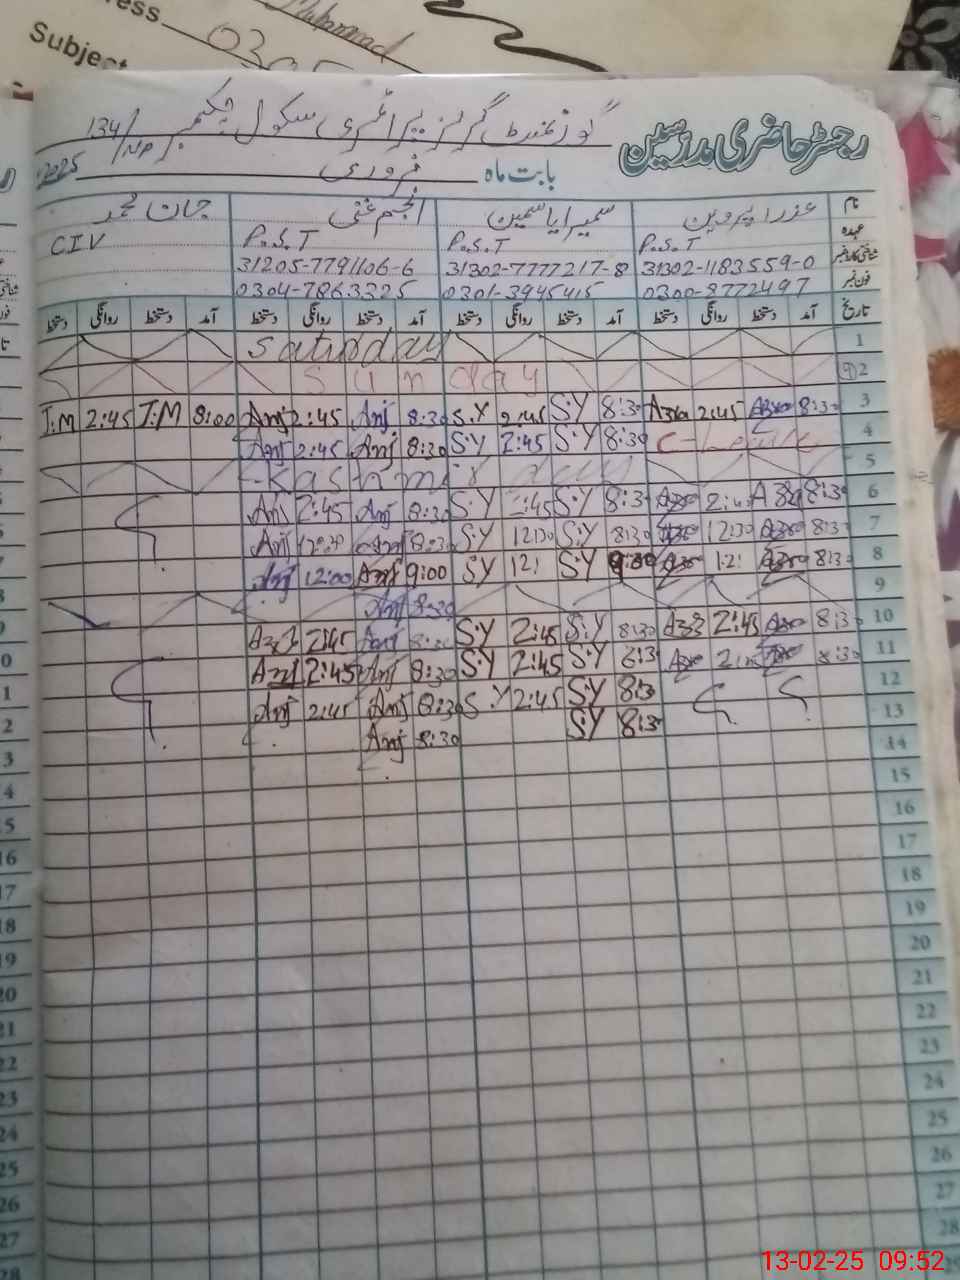 ress
Muhammad
Subject
030
گورنمنٹ گرلز پرائمری سکول چک نمبر 134/NP
رجسٹر حاضری مدرسین
بابت ماہ فروری 2025
نام عذرا پروین سمیرا یاسمین انجم غنی جان محمد
عہدہ P.S.T P.S.T P.S.T CIV
شناختی کارڈ نمبر 31302-1183559-0 31302-7777217-8 31205-7791106-6
فون نمبر 0300-8772497 0301-3945415 0304-7863325
تاریخ آمد دستخط روانگی دستخط آمد دستخط روانگی دستخط آمد دستخط روانگی دستخط آمد دستخط روانگی دستخط
Saturday 1
Sunday 2
J.M 2:45 J.M 8:00 Anj 2:45 Anj 8:30 S.Y 2:45 S.Y 8:30 Azra 2:45 Azra 8:30 3
Anj 2:45 Anj 8:30 S.Y 2:45 S.Y 8:30 C-Leave 4
Kashmir day 5
Anj 2:45 Anj 8:30 S.Y 2:45 S.Y 8:30 2:4 8:30 6
Anj 12:30 Anj 8:30 S.Y 12:30 S.Y 8:30 12:30 8:30 7
Anj 12:00 Anj 9:00 S.Y 12: S.Y 12: 8:30 8
Anj 8:30 9
2:45 Anj 8:30 S.Y 2:45 S.Y 8:30 2:45 8:30 10
Anj 2:45 Anj 8:30 S.Y 2:45 S.Y 8:30 11
Anj 2:45 Anj 8:30 S.Y 2:45 S.Y 8:3 12
Anj 8:30 S.Y 8:3 13
14
15
16
17
18
19
20
21
22
23
24
25
26
27
28
13-02-25 09:52